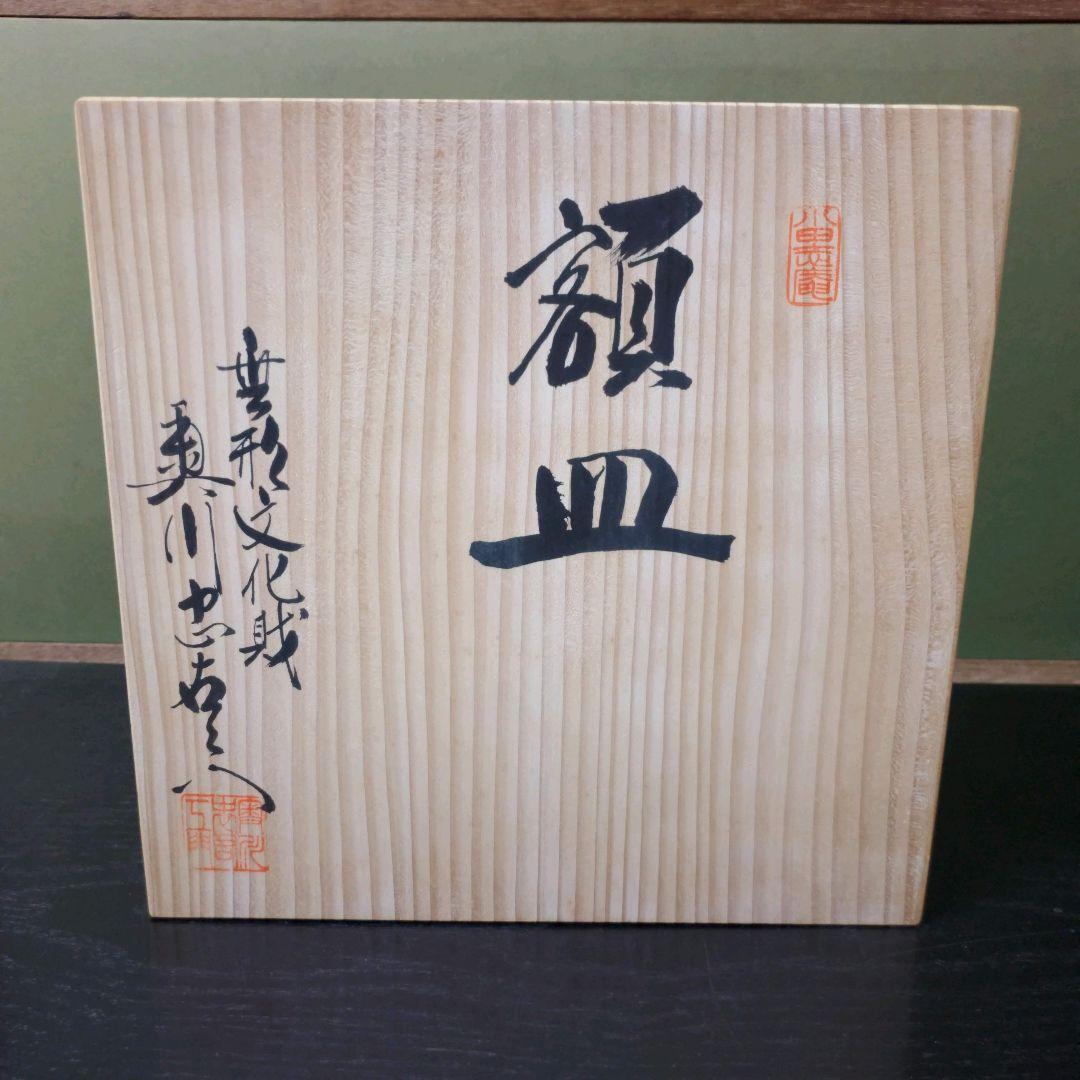 額皿
無形文化財
奥川忠右エ門